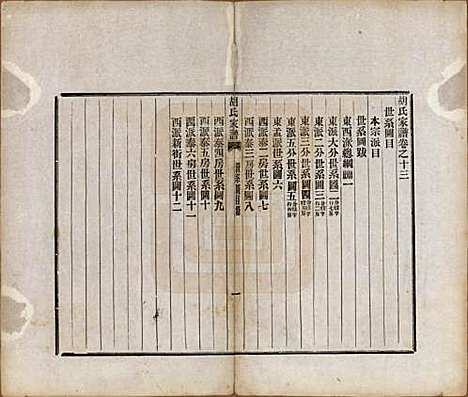 胡氏家譜卷之十三
世系圖目
本宗派目
世系圖跋
東西派總綱圖一
東派大分世系圖二
東派二分世系圖三
東派三分世系圖四
東派五分世系圖五
東孟派世系圖六
西派泰二房世系圖七
西派泰三房世系圖八
胡氏家譜
一
西派泰四房世系圖九
西派泰五房世系圖十
西派泰六房世系圖十一
西派新街世系圖十二